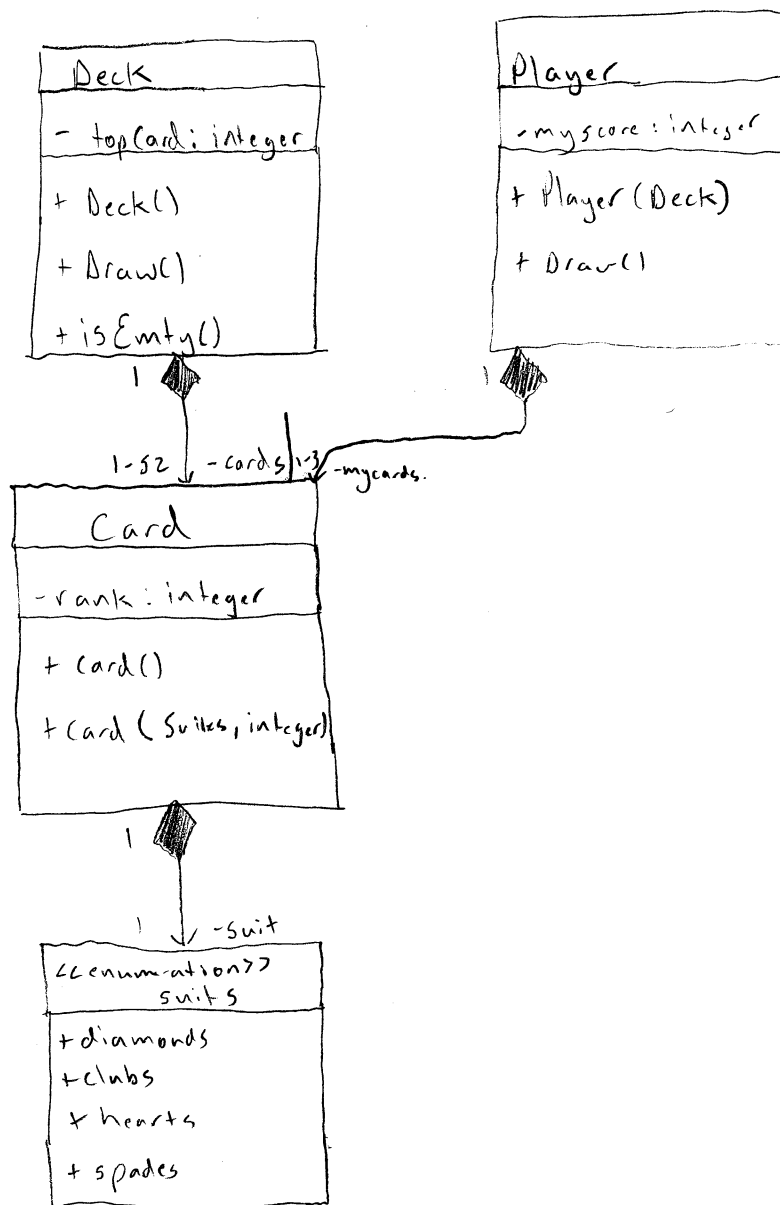 Deck
- topCard: integer
+ Deck()
+ Draw()
+ isEmty()
Player
- myscore: integer
+ Player (Deck)
+ Draw()
1
1
1-52
-cards
1-3
-mycards.
Card
-rank: integer
+ Card()
+ Card (Suites, integer)
1
1
-suit
<<enumeration>>
suits
+ diamonds
+ clubs
+ hearts
+ spades